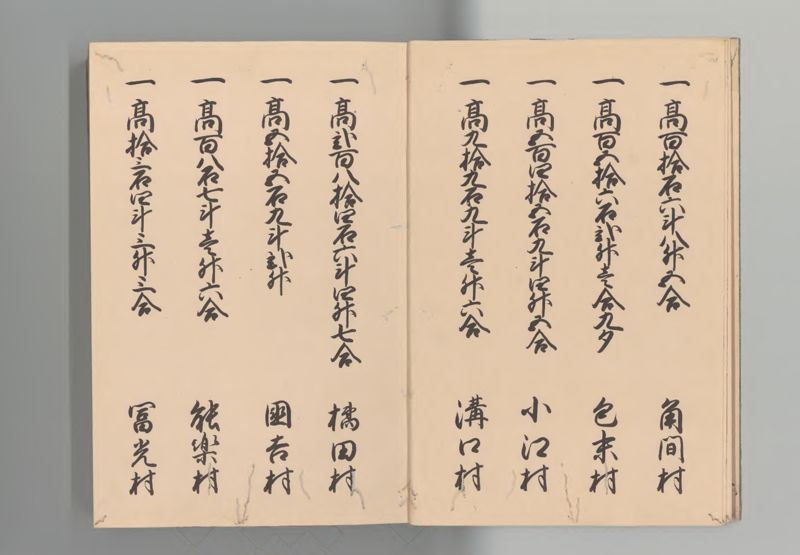 一 髙百拾石六斗八升五合 角間村
一 髙百五拾六石弐升壱合九夕 包末村
一 髙五百四拾五石九斗四升五合 小江村
一 髙九拾九石九斗壱升六合 溝口村
一 髙弐百八拾四石六斗四升七合 橘田村
一 髙五拾五石九斗弐升 國吉村
一 髙百八石七斗壱升六合 能楽村
一 髙拾三石四斗三升三合 冨光村